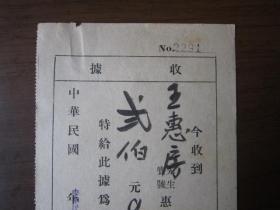 No. 2291
收據
今收到
王惠房
先生
寶號
惠
弍佰
元
特給此據爲
中華民國
年